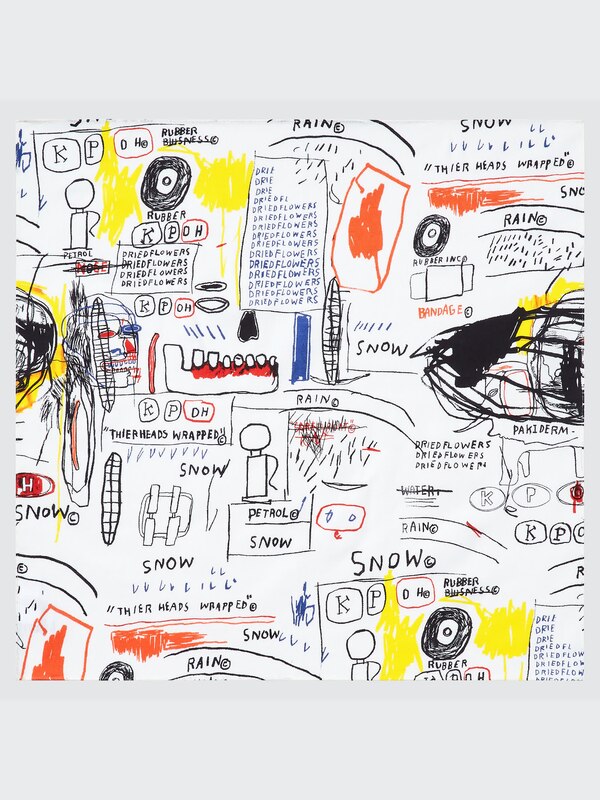 SNOW
RUBBER
BUSNESS©
K P DH©
RAIN©
SNOW
"THIER HEADS WRAPPED"©
SNO
RUBBER
K P DH
PETROL
DRIEDFLOWERS
DRIEDFLOWERS
DRIEDFLOWERS
DRIE
DRIE
DRIE
DRIEDFL
DRIEDFLOWERS
DRIEDFLOWERS
DRIEDFLOWERS
DRIEDFLOWERS
DRIEDFLOWERS
DRIEDFLOWERS
DRIEDFLOWERS
DRIEDFLOWERS
DRIEDFLOWERS
RAIN©
RUBBER INC©
BANDAGE©
K P DH
SNOW
RAIN©
K P DH
"THIERHEADS WRAPPED"©
SNOW
PAKIDERM.
DRIEDFLOWERS
DRIEDFLOWERS
DRIEDFLOWERS
WATER
K P
H
SNOW©
PETROL©
SNOW
RAIN©
K P
SNOW
SNOW©
"THIER HEADS WRAPPED"©
SNOW
RAIN©
K P DH©
RUBBER
BUSNESS©
RUBBER
DRIE
DRIE
DRIE
DRIEDFL
DRIEDFLOW
DRIEDFLOW
DRIEDFLOW